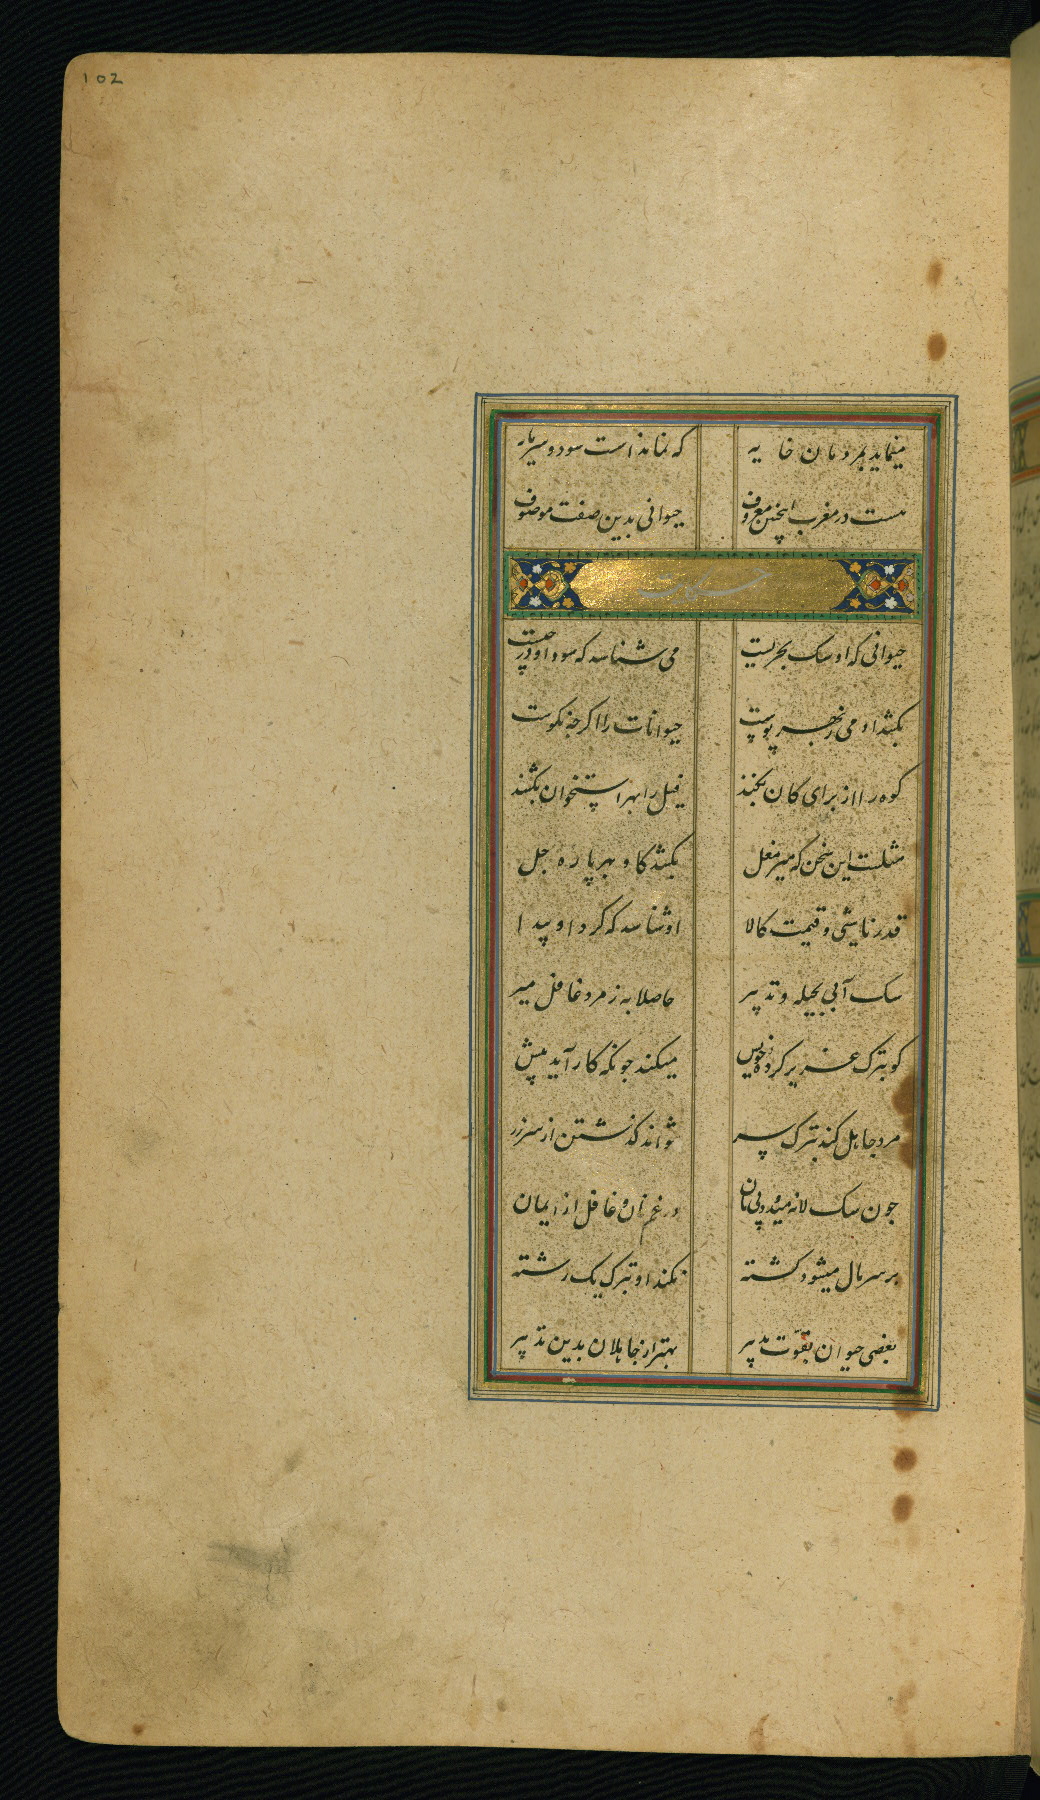 102
مینماید بمردمان خایه که نمانداست سود و سرمایه
هست در مغرب اینچنین معروف حیوانی بدین صفت موصوف
حکایت
حیوانی که او سک بحریست می شناسد که سود او در چیست
بکشد او می بهر پوست حیوانات را اکرچه نکوست
کوه را از برای کان بکنند فیل را بهر استخوان بکشند
مثلست این سخن که میر مغل بکشد کاو بهر پاره جل
قدر نایشی و قیمت کالا او شناسد که کرد او پیدا
سک آبی بحیله و تدبیر حاصلا به ز مرد غافل میر
کو بترک عزیز کرده خویش میکند چونکه کار آید پیش
مرد جاهل کند بترک سر نتواند کذشتن از سر زر
چون سک لانه میدود پی نان در غم نان و غافل از ایمان
بر سر مال میشود کشته نکند او بترک یک رشته
بعضی حیوان بقوت تدبیر بهتر از جاهلان بدین تدبیر